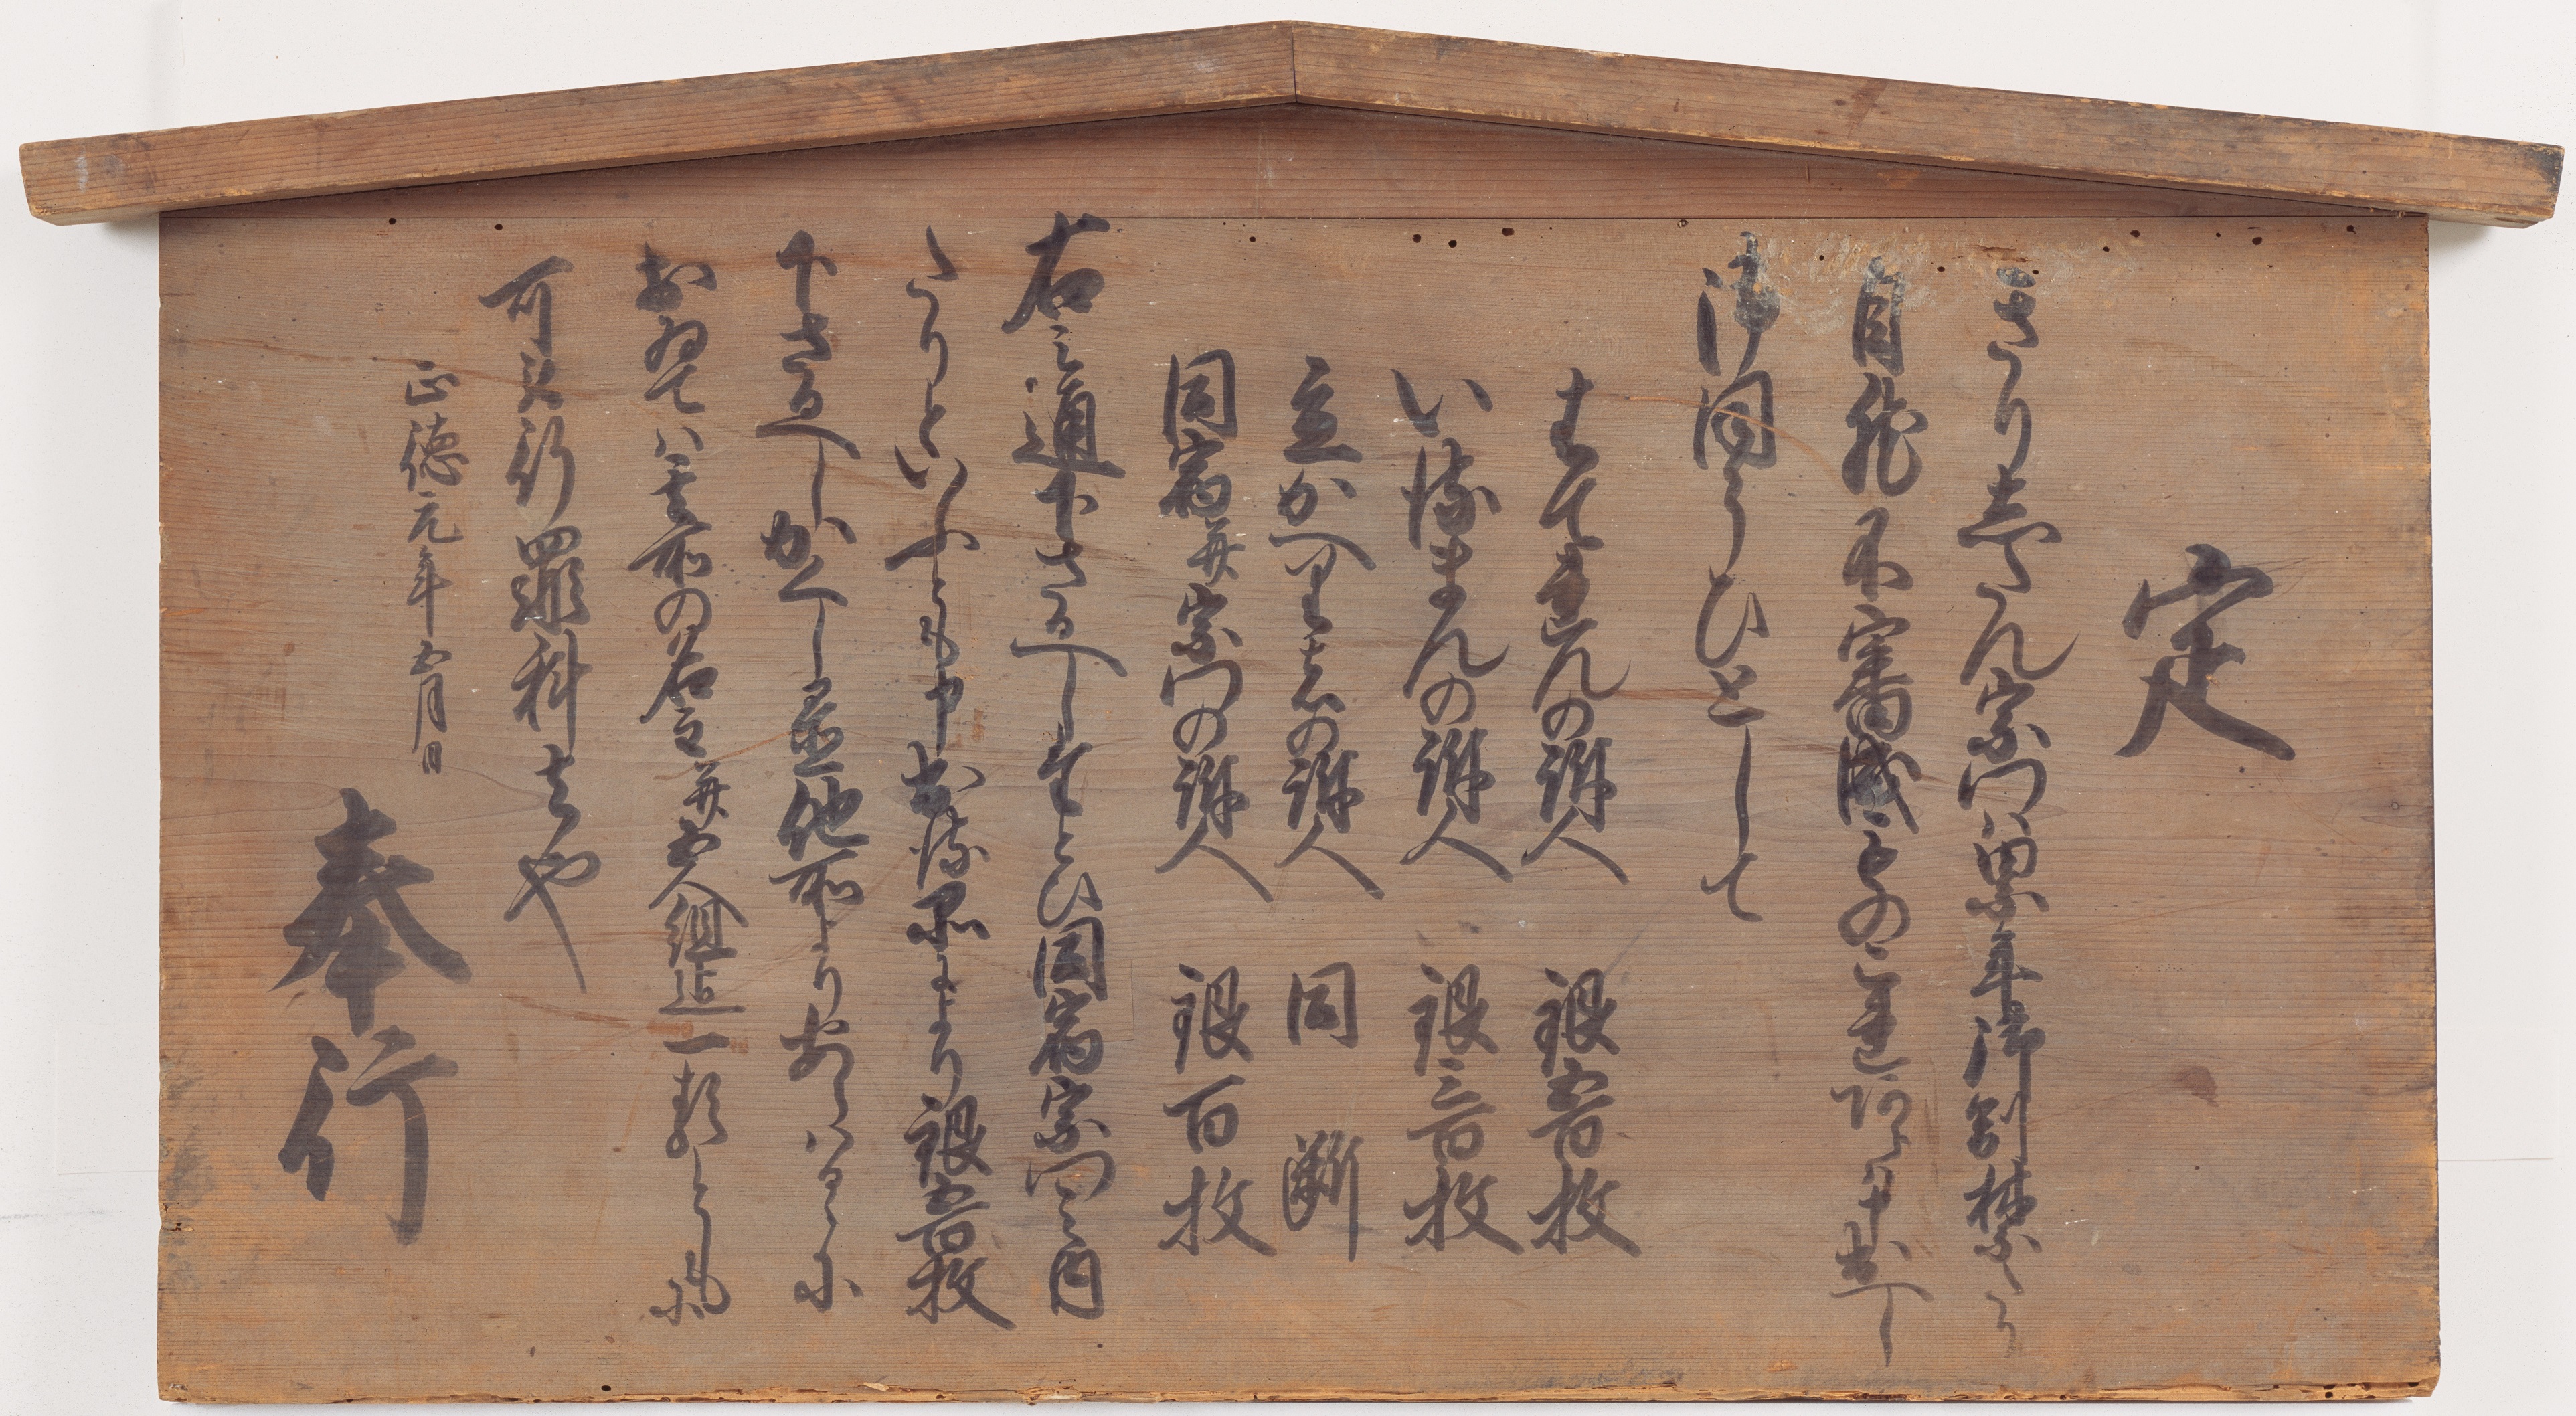 定
きりしたん宗門は累年御制禁たり
自然不審成もの有之は申出へし
御ほうひとして
はてれんの訴人　銀五百枚
いるまんの訴人　銀三百枚
立かへり者の訴人　同断
同宿并宗門の訴人　銀百枚
右之通下さるへしたとひ同宿宗門之内
たりといふとも申出る品により銀五百枚
下さるへしかくし置他所よりあらはるゝに
おゐては其所の名主并五人組迄一類ともに
可被行罪科者也
正徳元年五月日
奉行